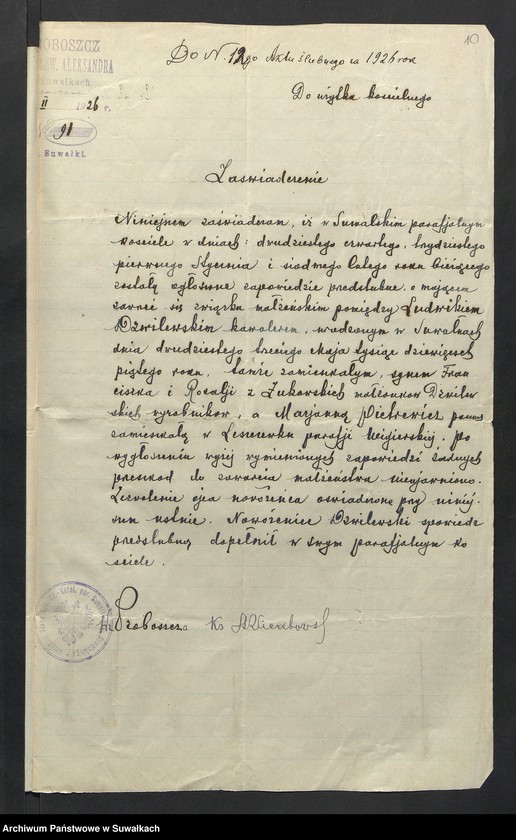 10
PROBOSZCZ
ŚW. ALEKSANDRA
Suwałkach
Do N. 12go Aktu ślubnego za 1926 rok
II 1926 r.
Do użytku kościelnego
91
Suwałki.
Zaświadczenie
Niniejszem zaświadczam, iż w Suwalskim parafjalnym
kościele w dniach: dwudziestego czwartego, trzydziestego
pierwszego Stycznia i siódmego Lutego roku bieżącego
zostały ogłoszone zapowiedzie przedślubne o mającem
zawrzeć się związku małżeńskim pomiędzy Ludwikiem
Dzwilewskim kawalerem, urodzonym w Suwałkach
dnia dwudziestego trzeciego Maja tysiąc dziewięcset
piątego roku, tamże zamieszkałym, synem Fran
ciszka i Rozalji z Żukowskich małżonków Dzwilew
skich wyrobników, a Marjanną Pietrewicz panną
zamieszkałą w Leszczewku parafji Wigierskiej. Po
wygłoszeniu wyżej wymienionych zapowiedzi żadnych
przeszkód do zawarcia małżeństwa nieujawniono.
Zezwolenie ojca nowożeńca oświadczone przy niniej-
szem ustnie. Nowożeniec Dzwilewski spowiedź
przedślubną dopełnił w swym parafjalnym ko
ściele.
Proboszcza Ks
Archiwum Państwowe w Suwałkach